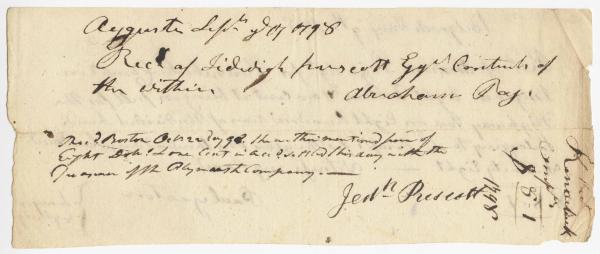 Augusta Sept. ye 17 1798
Recd of Jedidiah Prescott Esqr. Contents of
the within Abraham Page
Recd. Boston Oct 22d 1798 the within mentioned sum of
Eight Dols. & one Cent in accd. settled this day with the
Treasurer of the Plymouth Company.
Jedh Prescott
Kennebeck
$ 8:1
1798